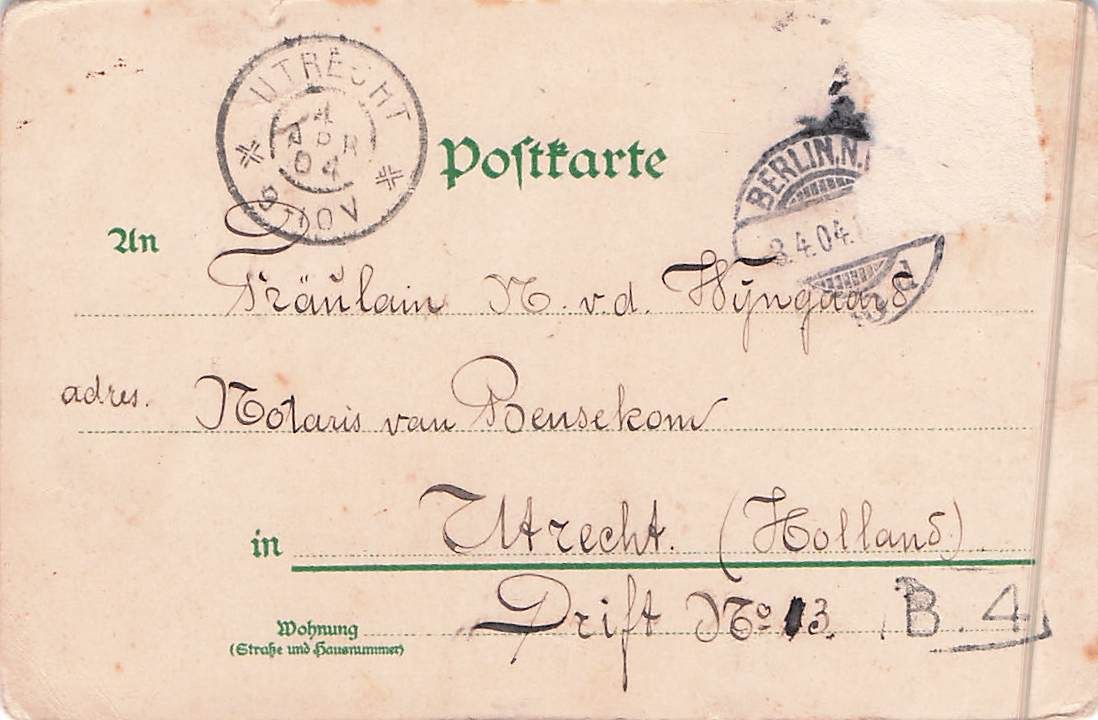 UTRECHT
4
APR
04
9-10V
Postkarte
BERLIN.N.
3.4.04.
d
An Fräulain N. v. d. Wÿngaard
adres. Notaris van Bensekom
in Utrecht. (Holland)
Wohnung
(Straße und Hausnummer)
Drift No 13. B.4